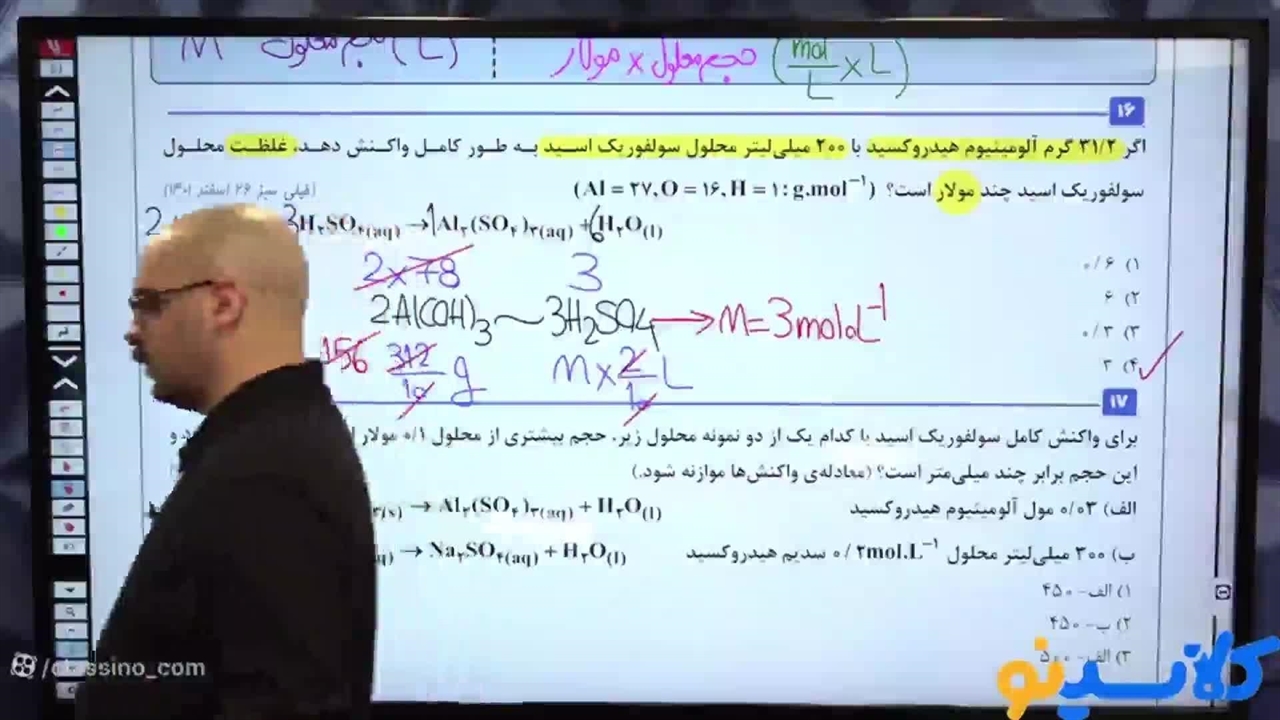 M حجم محلول (L) حجم محلول × مولار (mol/L × L)
۱۶
اگر ۳۱/۲ گرم آلومینیوم هیدروکسید با ۲۰۰ میلی‌لیتر محلول سولفوریک اسید به طور کامل واکنش دهد، غلظت محلول
سولفوریک اسید چند مولار است؟ (Al = ۲۷, O = ۱۶, H = ۱ : g.mol⁻¹) (قلمی سبز ۲۶ اسفند ۱۴۰۱)
2 3H₂SO₄(aq) → 1Al₂(SO₄)₃(aq) + 6H₂O(l)
2×78 3
۱) ۰/۶
2Al(OH)₃ ~ 3H₂SO₄ → M = 3mol.L⁻¹
۲) ۶
۳) ۰/۳
156 312/10 g M × 2/10 L
۴) ۳ ✓
۱۷
برای واکنش کامل سولفوریک اسید با کدام یک از دو نمونه محلول زیر، حجم بیشتری از محلول ۰/۱ مولار
این حجم برابر چند میلی‌متر است؟ (معادله‌ی واکنش‌ها موازنه شود.)
الف) ۰/۰۳ مول آلومینیوم هیدروکسید ۳(s) → Al₂(SO₄)₃(aq) + H₂O(l)
ب) ۳۰۰ میلی‌لیتر محلول ۰/۲mol.L⁻¹ سدیم هیدروکسید q) → Na₂SO₄(aq) + H₂O(l)
۱) الف- ۴۵۰
۲) ب- ۴۵۰
۳) الف- ۵۰۰
/classino_com
کلاسینو